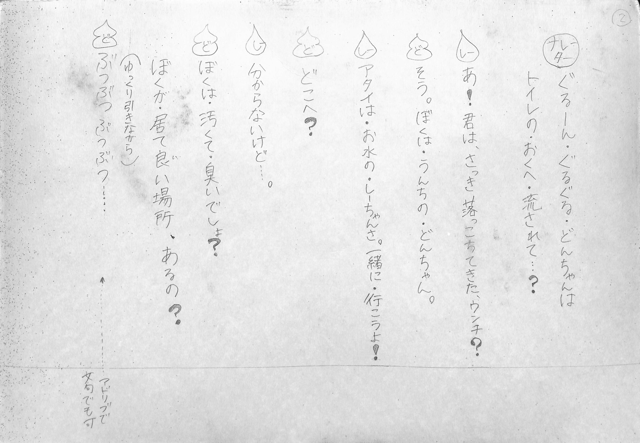 ②
ナレーター
ぐるーん・ぐるぐる・どんちゃんは
トイレの・おくへ・流されて…?
し あ!君は、さっき落っこちてきた、ウンチ?
ど そう。ぼくは・うんちの・どんちゃん。
し アタイは・お水の・しーちゃんさ。一緒に・行こうよ!
ど どこへ?
し 分からないけど…。
ど ぼくは・汚くて・臭いでしょ?
ぼくが・居て良い場所、あるの?
(ゆっくり引きながら)
ど ぶつぶつ ぶつぶつ……
アドリブで
文句でも可